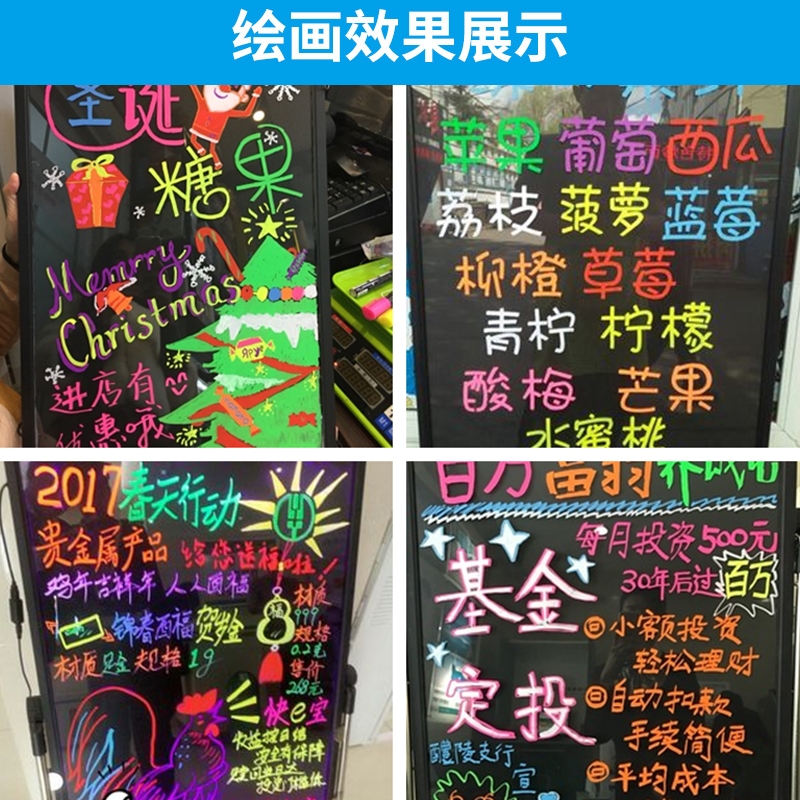 绘画效果展示
圣诞
糖果
Memrry
Christmas
进店有
优惠哦
苹果 葡萄 西瓜
荔枝 菠萝 蓝莓
柳橙 草莓
青柠 柠檬
酸梅 芒果
水蜜桃
2017春天行动
贵金属产品 给您送福啦！
鸡年吉祥年 人人面福
福
锦春酉福 贺岁金
材质足金 规格1g
材质
999
规格
0.2克
售价
268元
快e宝
收益按日结
安全有保障
百万富翁养成记
每月投资500元
30年后过百万
基金
定投
小额投资
轻松理财
自动扣款
手续简便
平均成本
醴陵支行
宣